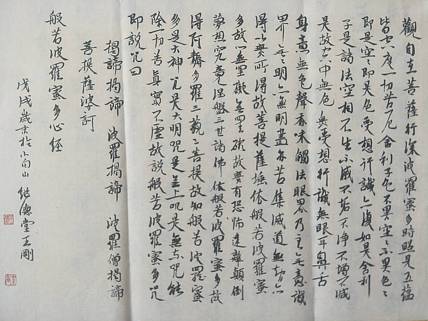 觀自在菩薩行深波羅蜜多時照見五蘊
皆空度一切苦厄舍利子色不異空空不異色色
即是空空即是色受想行識亦復如是舍利
子是諸法空相不生不滅不垢不淨不增不減
是故空中無色無受想行識無眼耳鼻舌
身意無色聲香味觸法眼界乃至無意識
界無無明亦無無明盡無苦集滅道無智亦
得以無所得故菩提薩埵依般若波羅蜜
多故心無罣礙無罣礙故無有恐怖遠離顛倒
夢想究竟涅槃三世諸佛依般若波羅蜜多故
得阿耨多羅三藐三菩提故知般若波羅蜜
多是大神咒是大明咒是無上咒是無等咒能
除一切苦真實不虛故說般若波羅蜜多咒
即說咒曰
揭諦揭諦 波羅揭諦 波羅僧揭諦
菩提薩婆訶
般若波羅蜜多心經
戊戌歲於南山 堂王剛